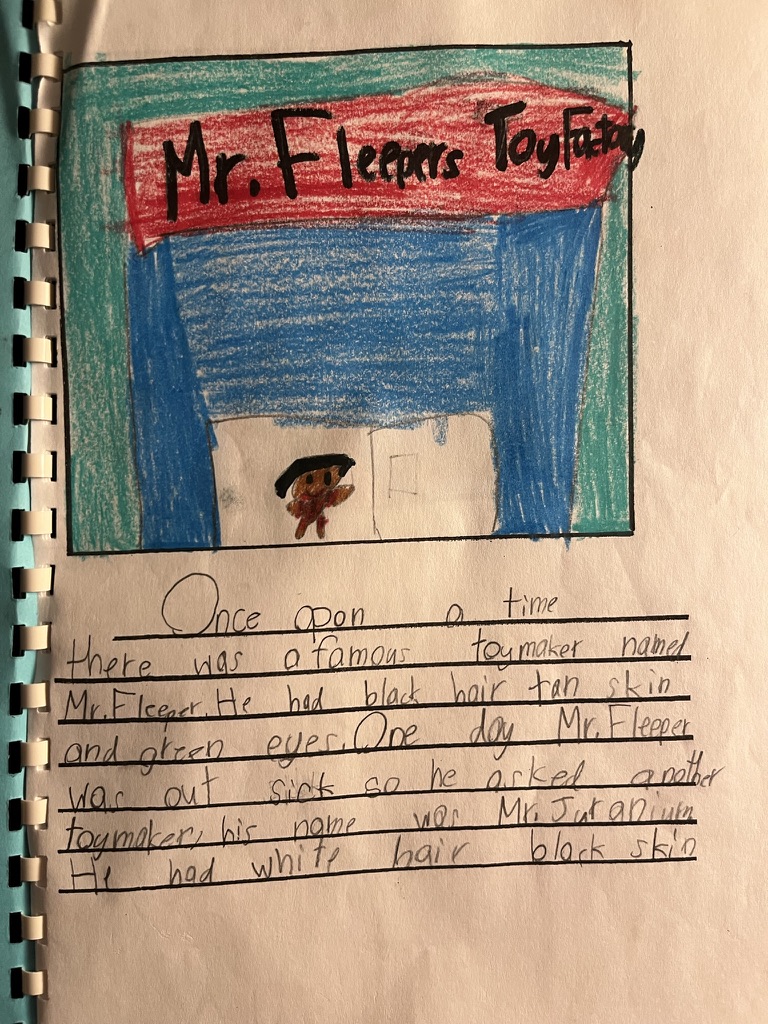 Mr. Fleepers Toy Factory
Once opon a time
there was a famous toymaker named
Mr. Fleeper. He had black hair tan skin
and green eyes. One day Mr. Fleeper
was out sick so he asked another
toymaker, his name was Mr. Juranium
He had white hair black skin